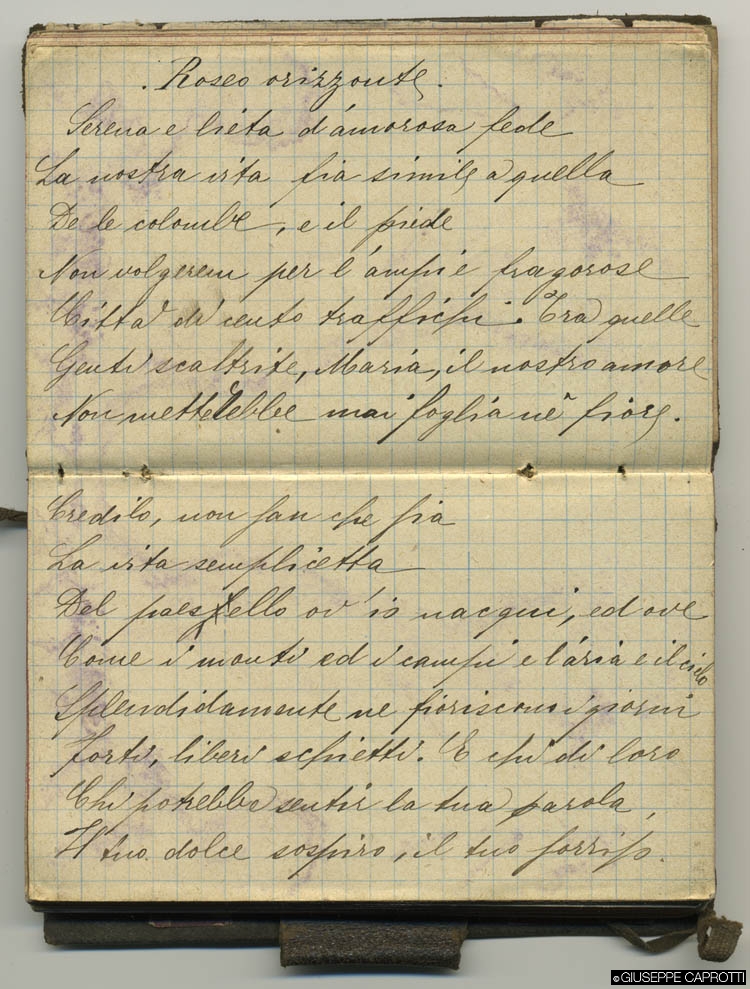 . Roseo orizzonte.
Serena e lieta d'amorosa fede
La nostra vita fia simile a quella
De le colombe, e il piede
Non volgerem per l'ampie fragorose
Città di cento traffichi. Tra quelle
Genti scaltrite, Maria, il nostro amore
Non metterebbe mai foglia nè fiore.
Credilo, non san che sia
La vita semplicetta
Del paesello ov'io nacqui, ed ove
Come i monti ed i campi e l'aria e il cielo
Splendidamente ne fioriscono i giorni
Forti, liberi schietti. E chi di loro
Chi potrebbe sentir la tua parola,
Il tuo dolce sospiro, il tuo
©GIUSEPPE CAPROTTI